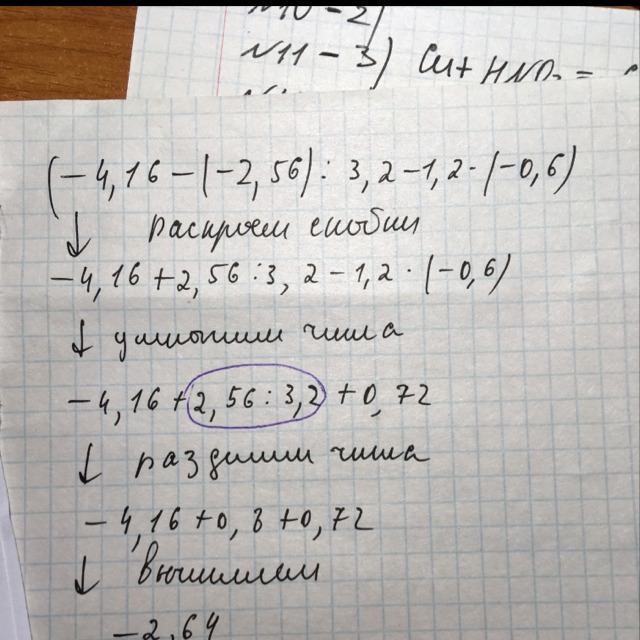 N10 - 2)
N11 - 3) Cu + HNO₃ =
(-4,16-(-2,56) : 3,2-1,2·(-0,6)
↓ раскроем скобки
-4,16+2,56:3,2-1,2·(-0,6)
↓ умножим числа
-4,16+2,56:3,2+0,72
↓ разделим числа
-4,16+0,8+0,72
↓ вычислим
-2,64